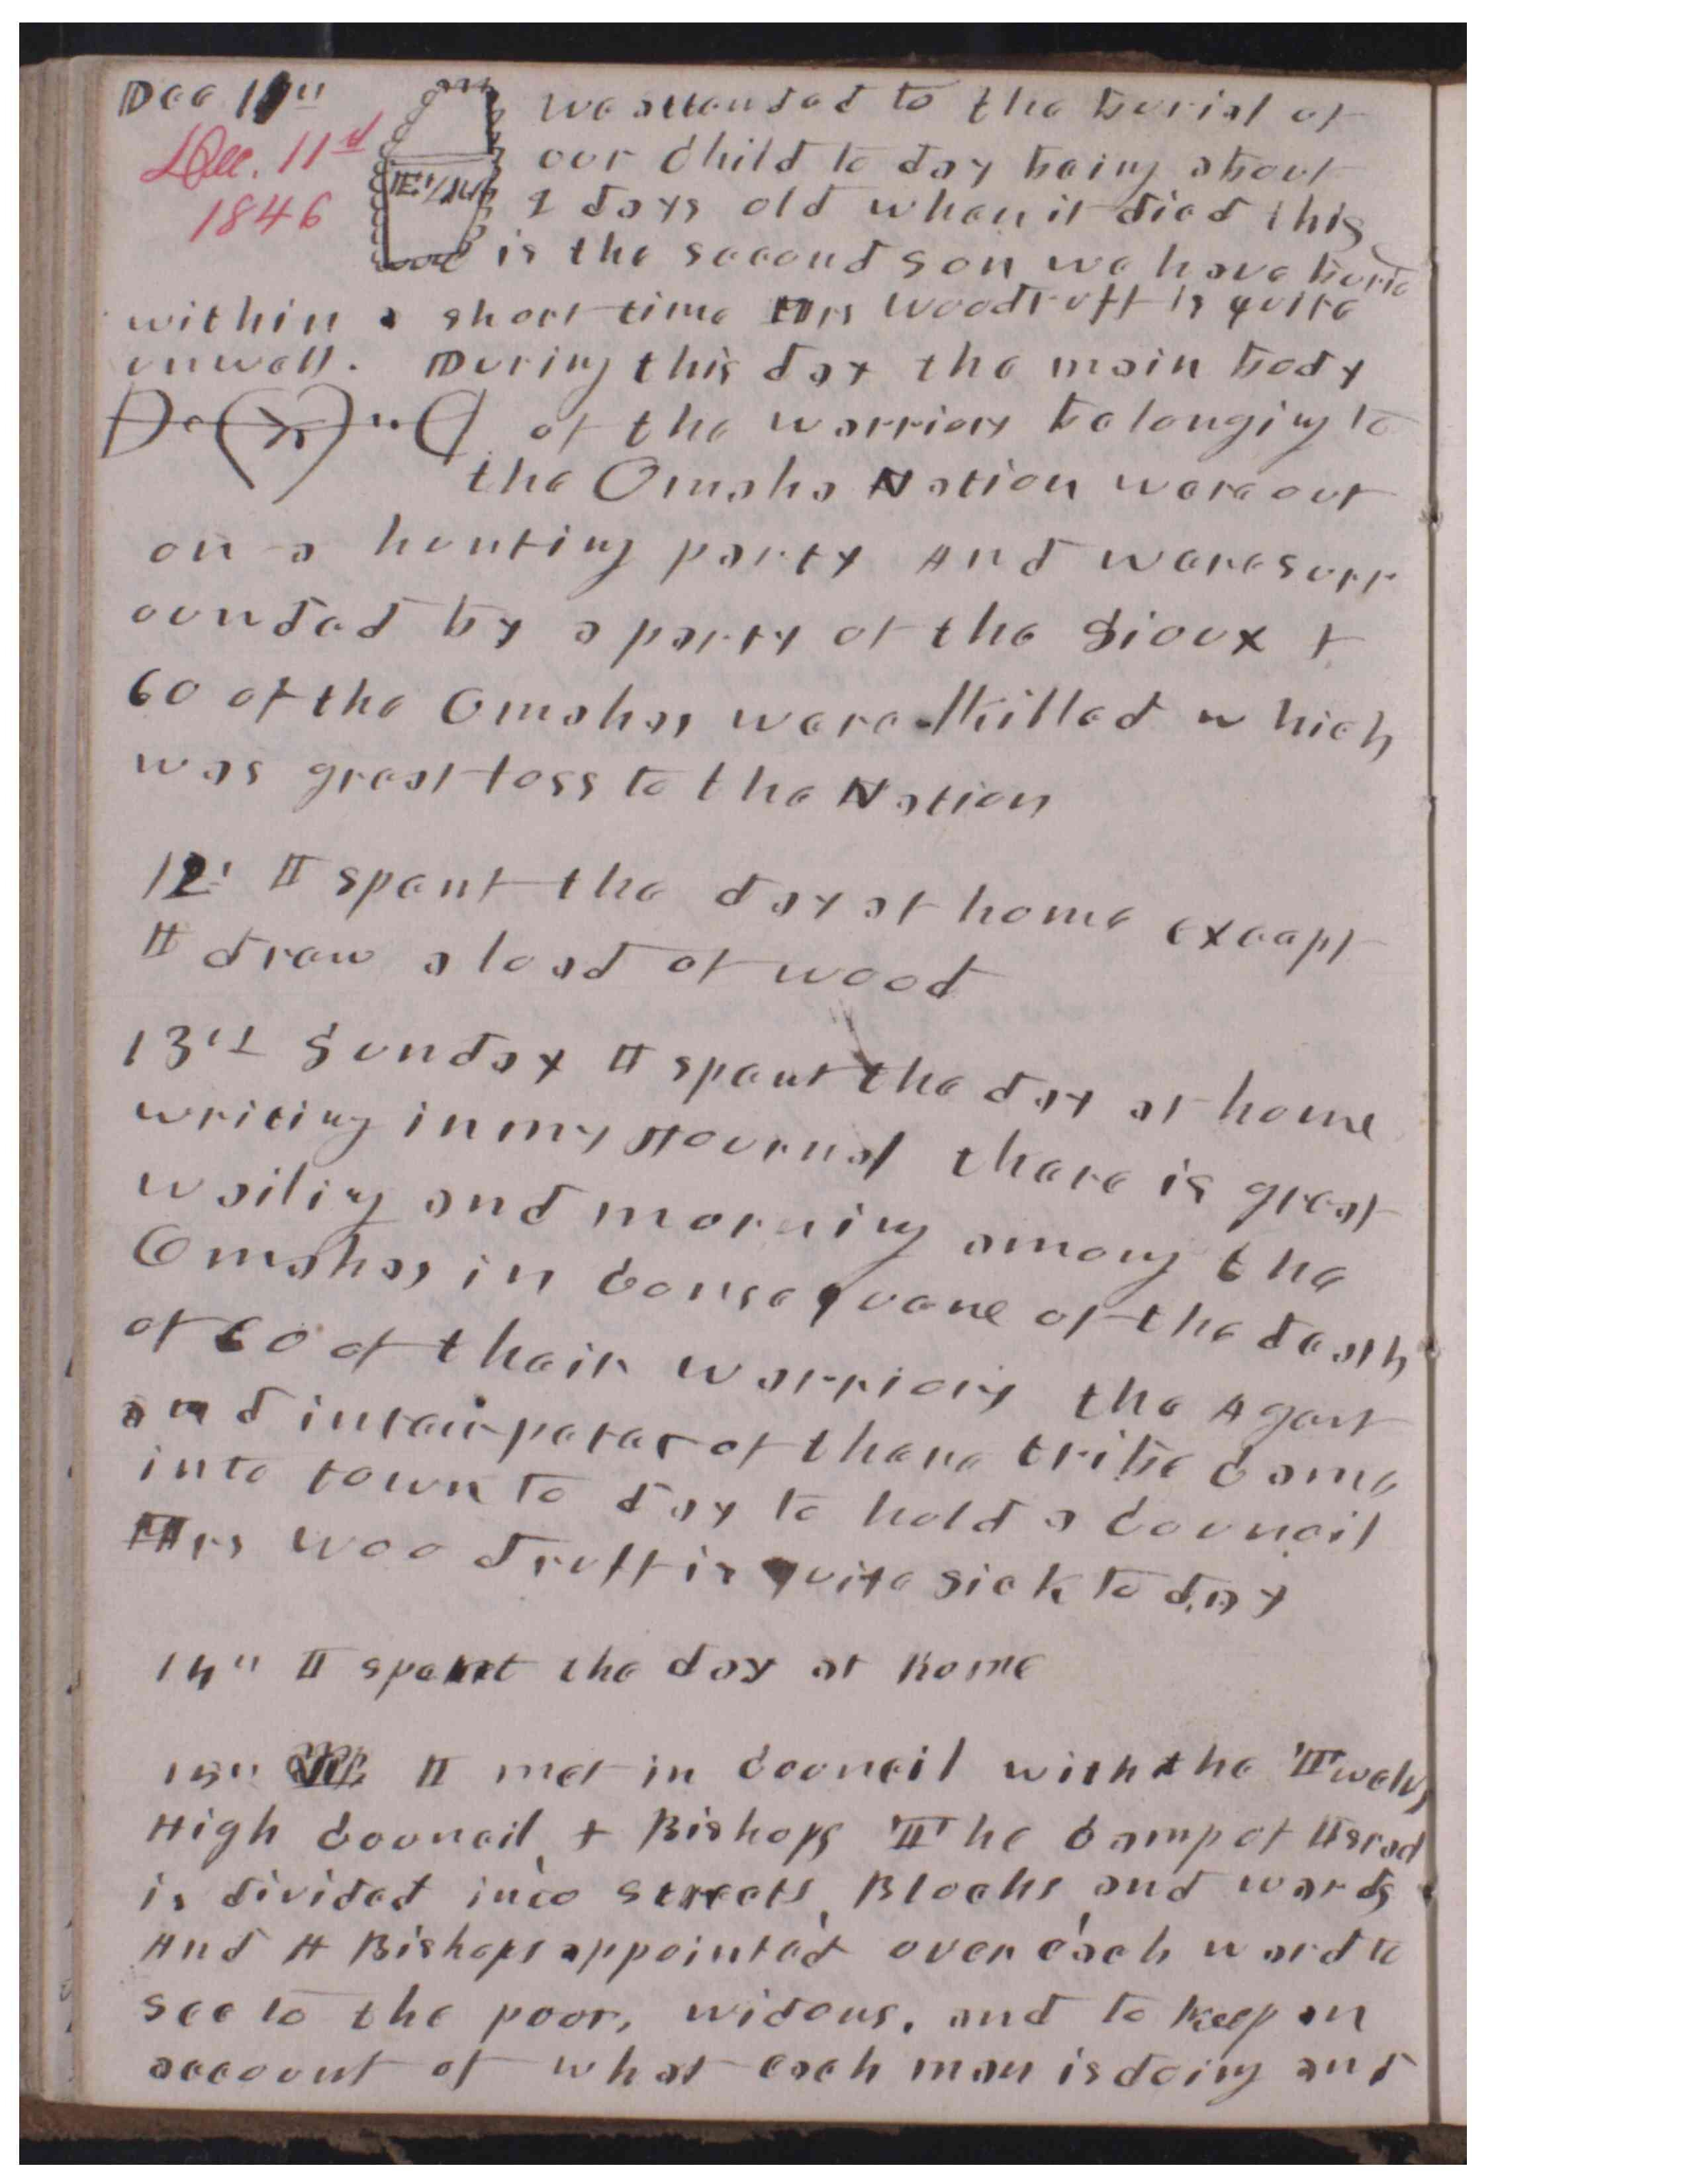 Dec 11th
Dec. 11th
1846
We attended to the burial of
our Child to day being about
2 days old when it died this
is the second son we have buried
within a short time Mrs Woodruff is quite
unwell. During this day the main body
of the warriors belonging to
the Omaha Nation were out
on a hunting party And were surr
ounded by a party of the Sioux &
60 of the Omahas were killed which
was great loss to the Nation
12th I spent the day at home except
I drew a load of wood
13th Sunday I spent the day at home
writing in my Journal there is great
wailing and morning among the
Omahas in Consequence of the death
of 60 of their warriors the Agent
and interpeter of there tribe Came
into town to day to hold a Council
Mrs Woodruff is quite sick to day
14th I spent the day at home
15th I met in Council with the Twelve
High Council, & Bishops The Camp of Israel
is divided into Streets, Blocks, and wards
And A Bishops appointed over each ward to
see to the poor, widows, and to keep an
account of what each man is doing and